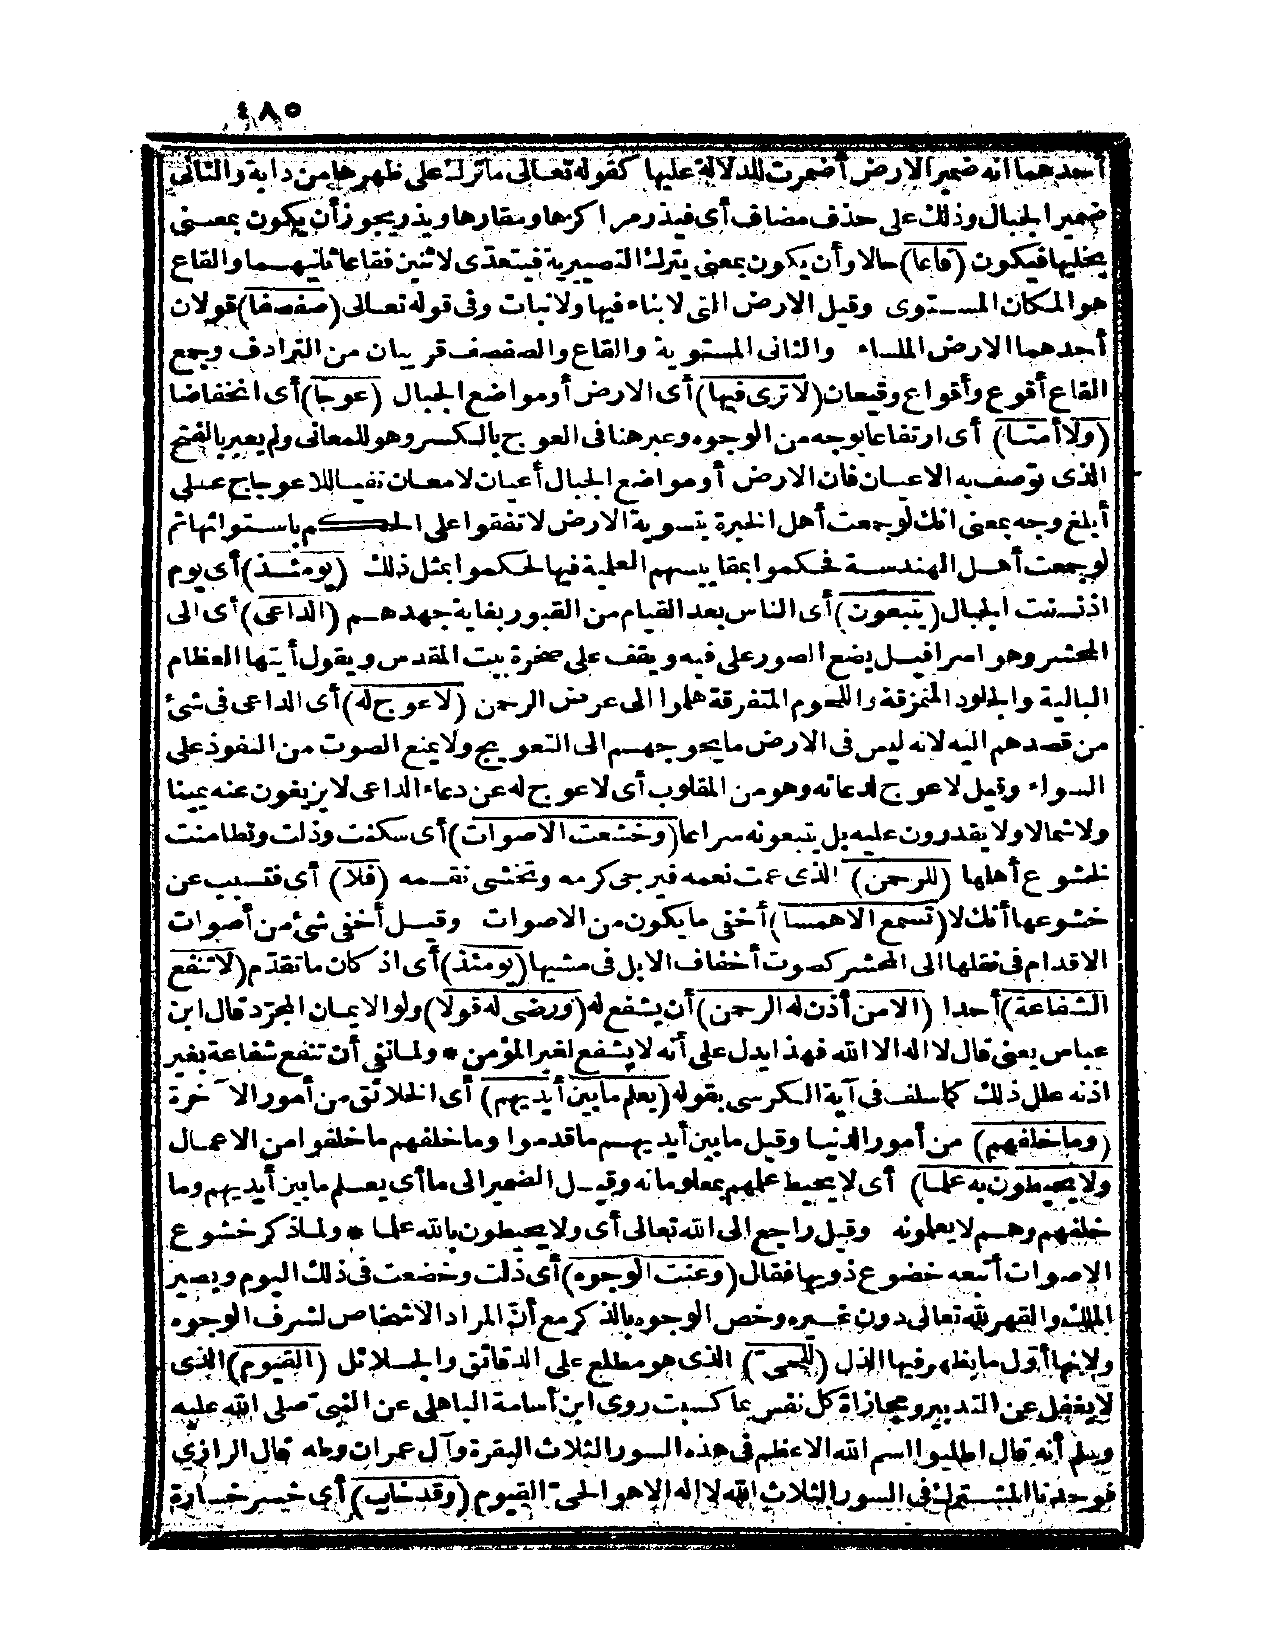 ٤٨٥
أحدهما انه ضمير الارض أضمرت للدلالة عليها كقوله تعالى ما ترك على ظهرها من دابة والثانى
ضمير الجبال وذلك على حذف مضاف أى فيذر مراكزها ومقارها ويذر يجوز أن يكون بمعنى
يخليها فيكون (قاعا) حالا وأن يكون بمعنى يترك التصييرية فيتعدى لاثنين فقاعا ثانيهما والقاع
هو المكان المستوى وقيل الارض التى لا بناء فيها ولا نبات وفى قوله تعالى (صفصفا) قولان
أحدهما الارض الملساء والثانى المستوية والقاع والصفصف قريبان من الترادف وجمع
القاع أقوع وأقواع وقيعان (لا ترى فيها) أى الارض أو مواضع الجبال (عوجا) أى انخفاضا
(ولا أمتا) أى ارتفاعا بوجه من الوجوه وعبر هنا فى العوج بالكسر وهو للمعانى ولم يعبر بالفتح
الذى توصف به الاعيان فان الارض أو مواضع الجبال أعيان لا معان نفيا للاعوجاج على
أبلغ وجه بمعنى انك لو جمعت أهل الخبرة بتسوية الارض لاتفقوا على الحكم باستوائها ثم
لو جمعت أهل الهندسة فحكموا بمقاييسهم العلمية فيها لحكموا بمثل ذلك (يومئذ) أى يوم
اذ نسفت الجبال (يتبعون) أى الناس بعد القيام من القبور بغاية جهدهم (الداعى) أى الى
المحشر وهو اسرافيل يضع الصور على فيه ويقف على صخرة بيت المقدس ويقول أيتها العظام
البالية والجلود المتمزقة واللحوم المتفرقة هلموا الى عرض الرحمن (لا عوج له) أى الداعى فى شئ
من قصدهم اليه لانه ليس فى الارض ما يحوجهم الى التعويج ولا يمنع الصوت من النفوذ على
السواء وقيل لا عوج لدعائه وهو من المقلوب أى لا عوج له عن دعاء الداعى لا يزيغون عنه يمينا
ولا شمالا ولا يقدرون عليه بل يتبعونه سراعا (وخشعت الاصوات) أى سكنت وذلت وتطامنت
لخشوع أهلها (للرحمن) الذى عمت نعمه فيرجى كرمه ويخشى نقمه (فلا) أى فتسبب عن
خشوعها أنك لا (تسمع الا همسا) أخفى ما يكون من الاصوات وقيل أخفى شئ من أصوات
الاقدام فى نقلها الى المحشر كصوت أخفاف الابل فى مشيها (يومئذ) أى اذ كان ما تقدم (لا تنفع
الشفاعة) أحدا (الا من أذن له الرحمن) أن يشفع له (ورضى له قولا) ولو الايمان المجرد قال ابن
عباس يعنى قال لا اله الا الله فهذا يدل على أنه لا يشفع لغير المؤمن * ولما نفى أن تنفع شفاعة بغير
اذنه علل ذلك كما سلف فى آية الكرسى بقوله (يعلم ما بين أيديهم) أى الخلائق من أمور الآخرة
(وما خلفهم) من أمور الدنيا وقيل ما بين أيديهم ما قدموا وما خلفهم ما خلفوا من الاعمال
(ولا يحيطون به علما) أى لا يحيط علمهم بمعلوماته وقيل الضمير الى ما أى يعلم ما بين أيديهم وما
خلفهم وهم لا يعلمونه وقيل راجع الى الله تعالى أى ولا يحيطون بالله علما * ولما ذكر خشوع
الاصوات أتبعه خضوع ذويها فقال (وعنت الوجوه) أى ذلت وخضعت فى ذلك اليوم ويصير
الملك والقهر لله تعالى دون غيره وخص الوجوه بالذكر مع أن المراد الاشخاص لشرف الوجوه
ولانها أول ما يظهر فيها الذل (للحى) الذى هو مطلع على الدقائق والجلائل (القيوم) الذى
لا يغفل عن التدبير ومجازاة كل نفس بما كسبت روى ابن أسامة الباهلى عن النبى صلى الله عليه
وسلم أنه قال اطلبوا اسم الله الاعظم فى هذه السور الثلاث البقرة وآل عمران وطه قال الرازى
فوجدنا المشترك فى السور الثلاث الله لا اله الا هو الحى القيوم (وقد خاب) أى خسر خسارة